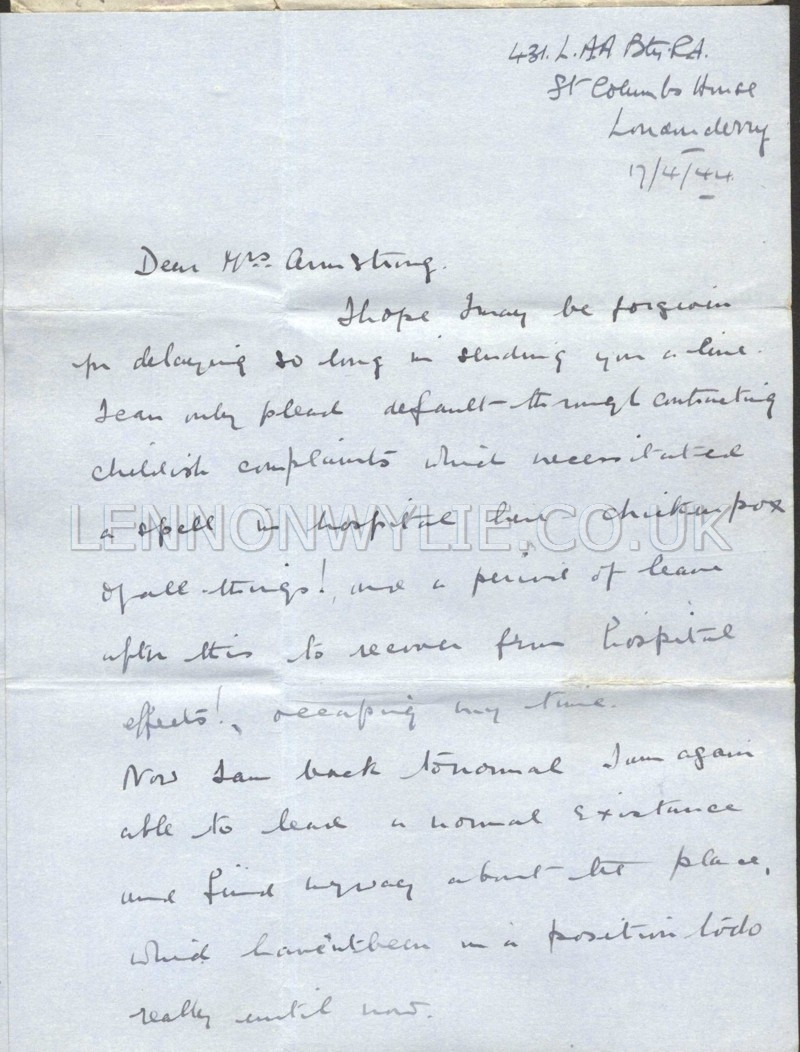 431. L.AA Bty. R.A.
St Columbs House
Londonderry
17/4/44.
Dear Mrs. Armstrong.
I hope I may be forgivin
for delaying so long in sending you a line.
I can only plead default through contracting
childish complaints which necessitated
a spell in hospital here - chickenpox
LENNONWYLIE.CO.UK
of all things!, and a period of leave
after this to recover from hospital
effects!, occupying my time.
Now I am back to normal I am again
able to lead a normal existance
and find my way about the place,
which haven't been in a position to do
really until now.